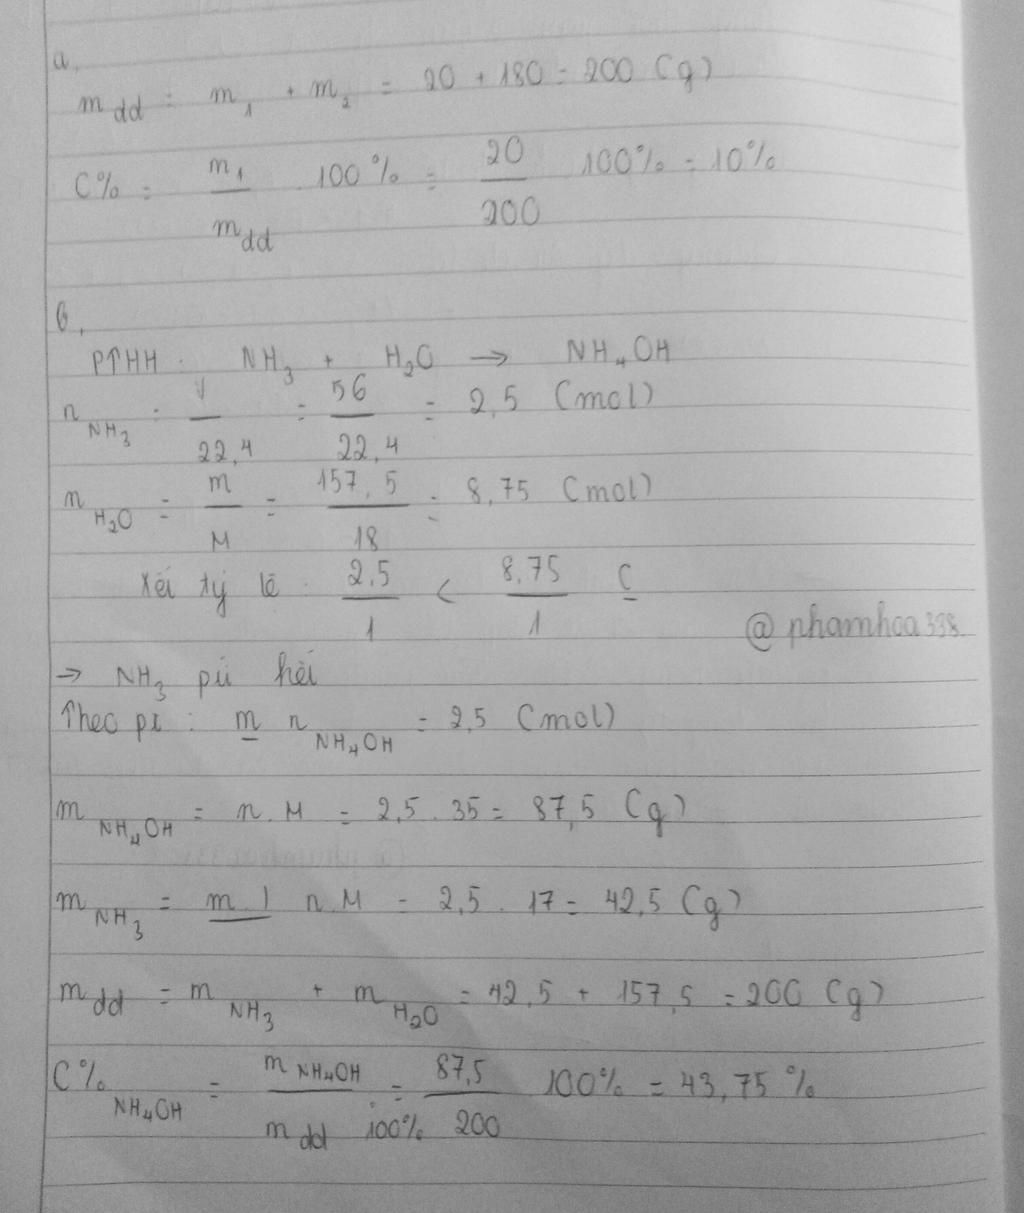 a,
m dd = m₁ + m₂ = 20 + 180 = 200 (g)
C% = m₁/m dd . 100% = 20/200 100% = 10%
b,
PTHH : NH₃ + H₂O → NH₄OH
n NH₃ = V/22,4 = 56/22,4 = 2,5 (mol)
n H₂O = m/M = 157,5/18 = 8,75 (mol)
Xét tỷ lệ : 2,5/1 < 8,75/1
@phamhoa338
→ NH₃ pứ hết
Theo pt : m n NH₄OH = 2,5 (mol)
m NH₄OH = n.M = 2,5 . 35 = 87,5 (g)
m NH₃ = n.M = 2,5 . 17 = 42,5 (g)
m dd = m NH₃ + m H₂O = 42,5 + 157,5 = 200 (g)
C% NH₄OH = m NH₄OH/m dd . 100% = 87,5/200 100% = 43,75 %